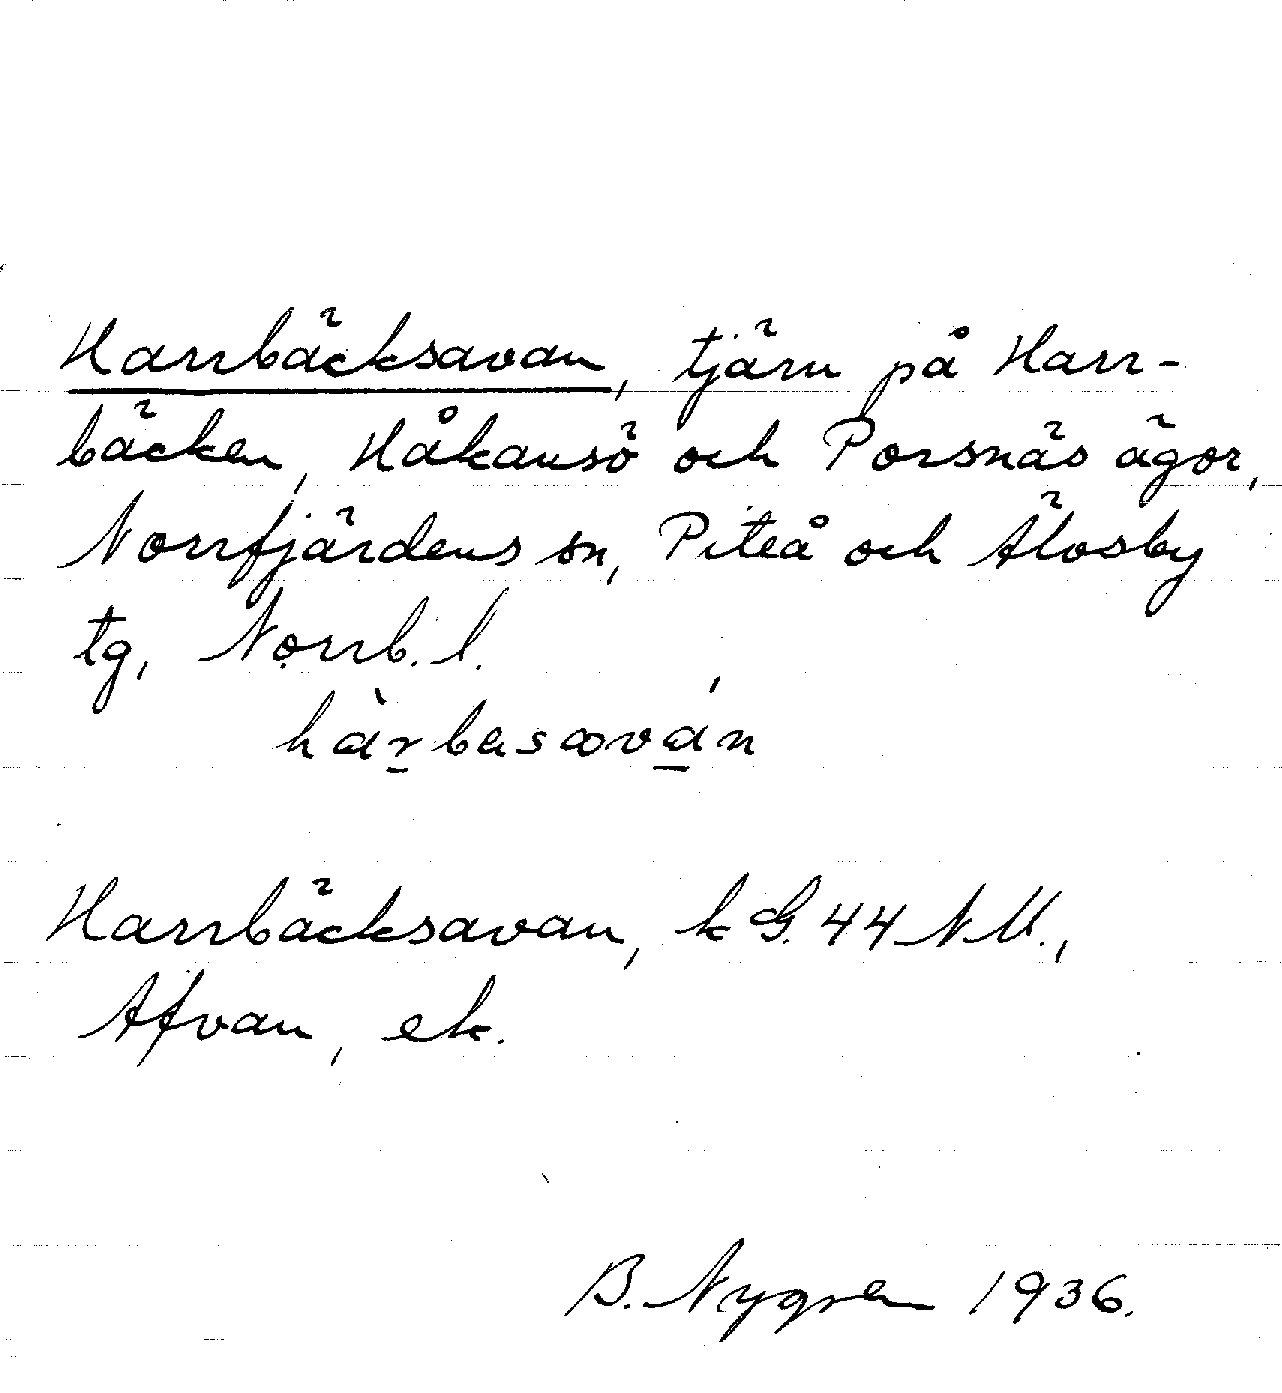 Harrbäcksavan, tjärn på Harr-
bäcken, Håkansö och Porsnäs ägor,
Norrfjärdens sn, Piteå och Älvsby
tg, Norrb. l.
hàr̲besævá̲n
Harrbäcksavan, k G. 44 N.V.,
Afvan, ek.
B. Nygren 1936.